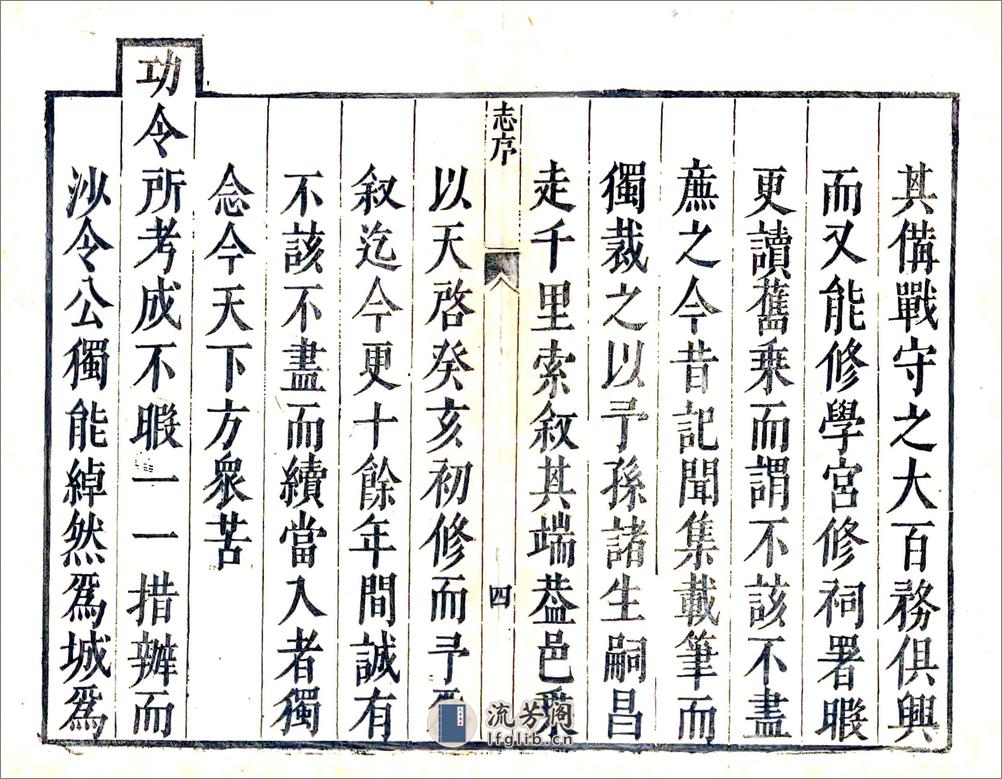 其備戰守之大百務俱興
而又能修學宮修祠署暇
更讀舊乗而謂不該不盡
廡之今昔記聞集載筆而
獨裁之以予孫諸生嗣昌
走千里索敘其端葢邑乗
志序
四
以天啓癸亥初修而予
敘迄今更十餘年間誠有
不該不盡而續當入者獨
念今天下方衆苦
功令所考成不暇一一措辦而
沙令公獨能綽然爲城爲
流芳阁
lfglib.cn